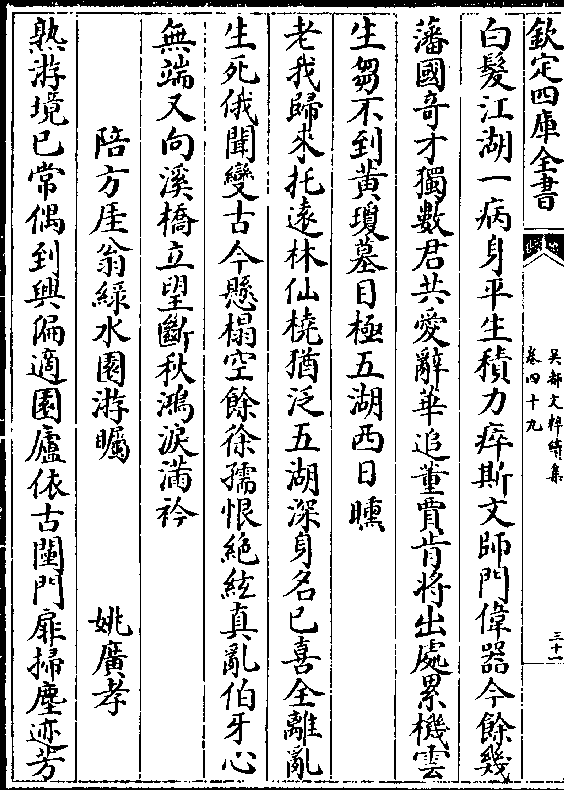 欽定四庫全書
吳都文粹續集
卷四十九
三十一
白髮江湖一病身平生積力瘁斯文師門偉器今餘幾
藩國奇才獨數君共愛辭華追董賈肯將出處累機雲
生芻不到黃瓊墓目極五湖西日曛
老我歸來托遠林仙橈猶泛五湖深身名已喜全離亂
生死俄聞變古今懸榻空餘徐孺恨絶絃真亂伯牙心
無端又向溪橋立望斷秋鴻淚滿衿
陪方厓翁綠水園游矚
姚廣孝
熟游境已常偶到興偏適園廬依古闉門扉掃塵迹芳